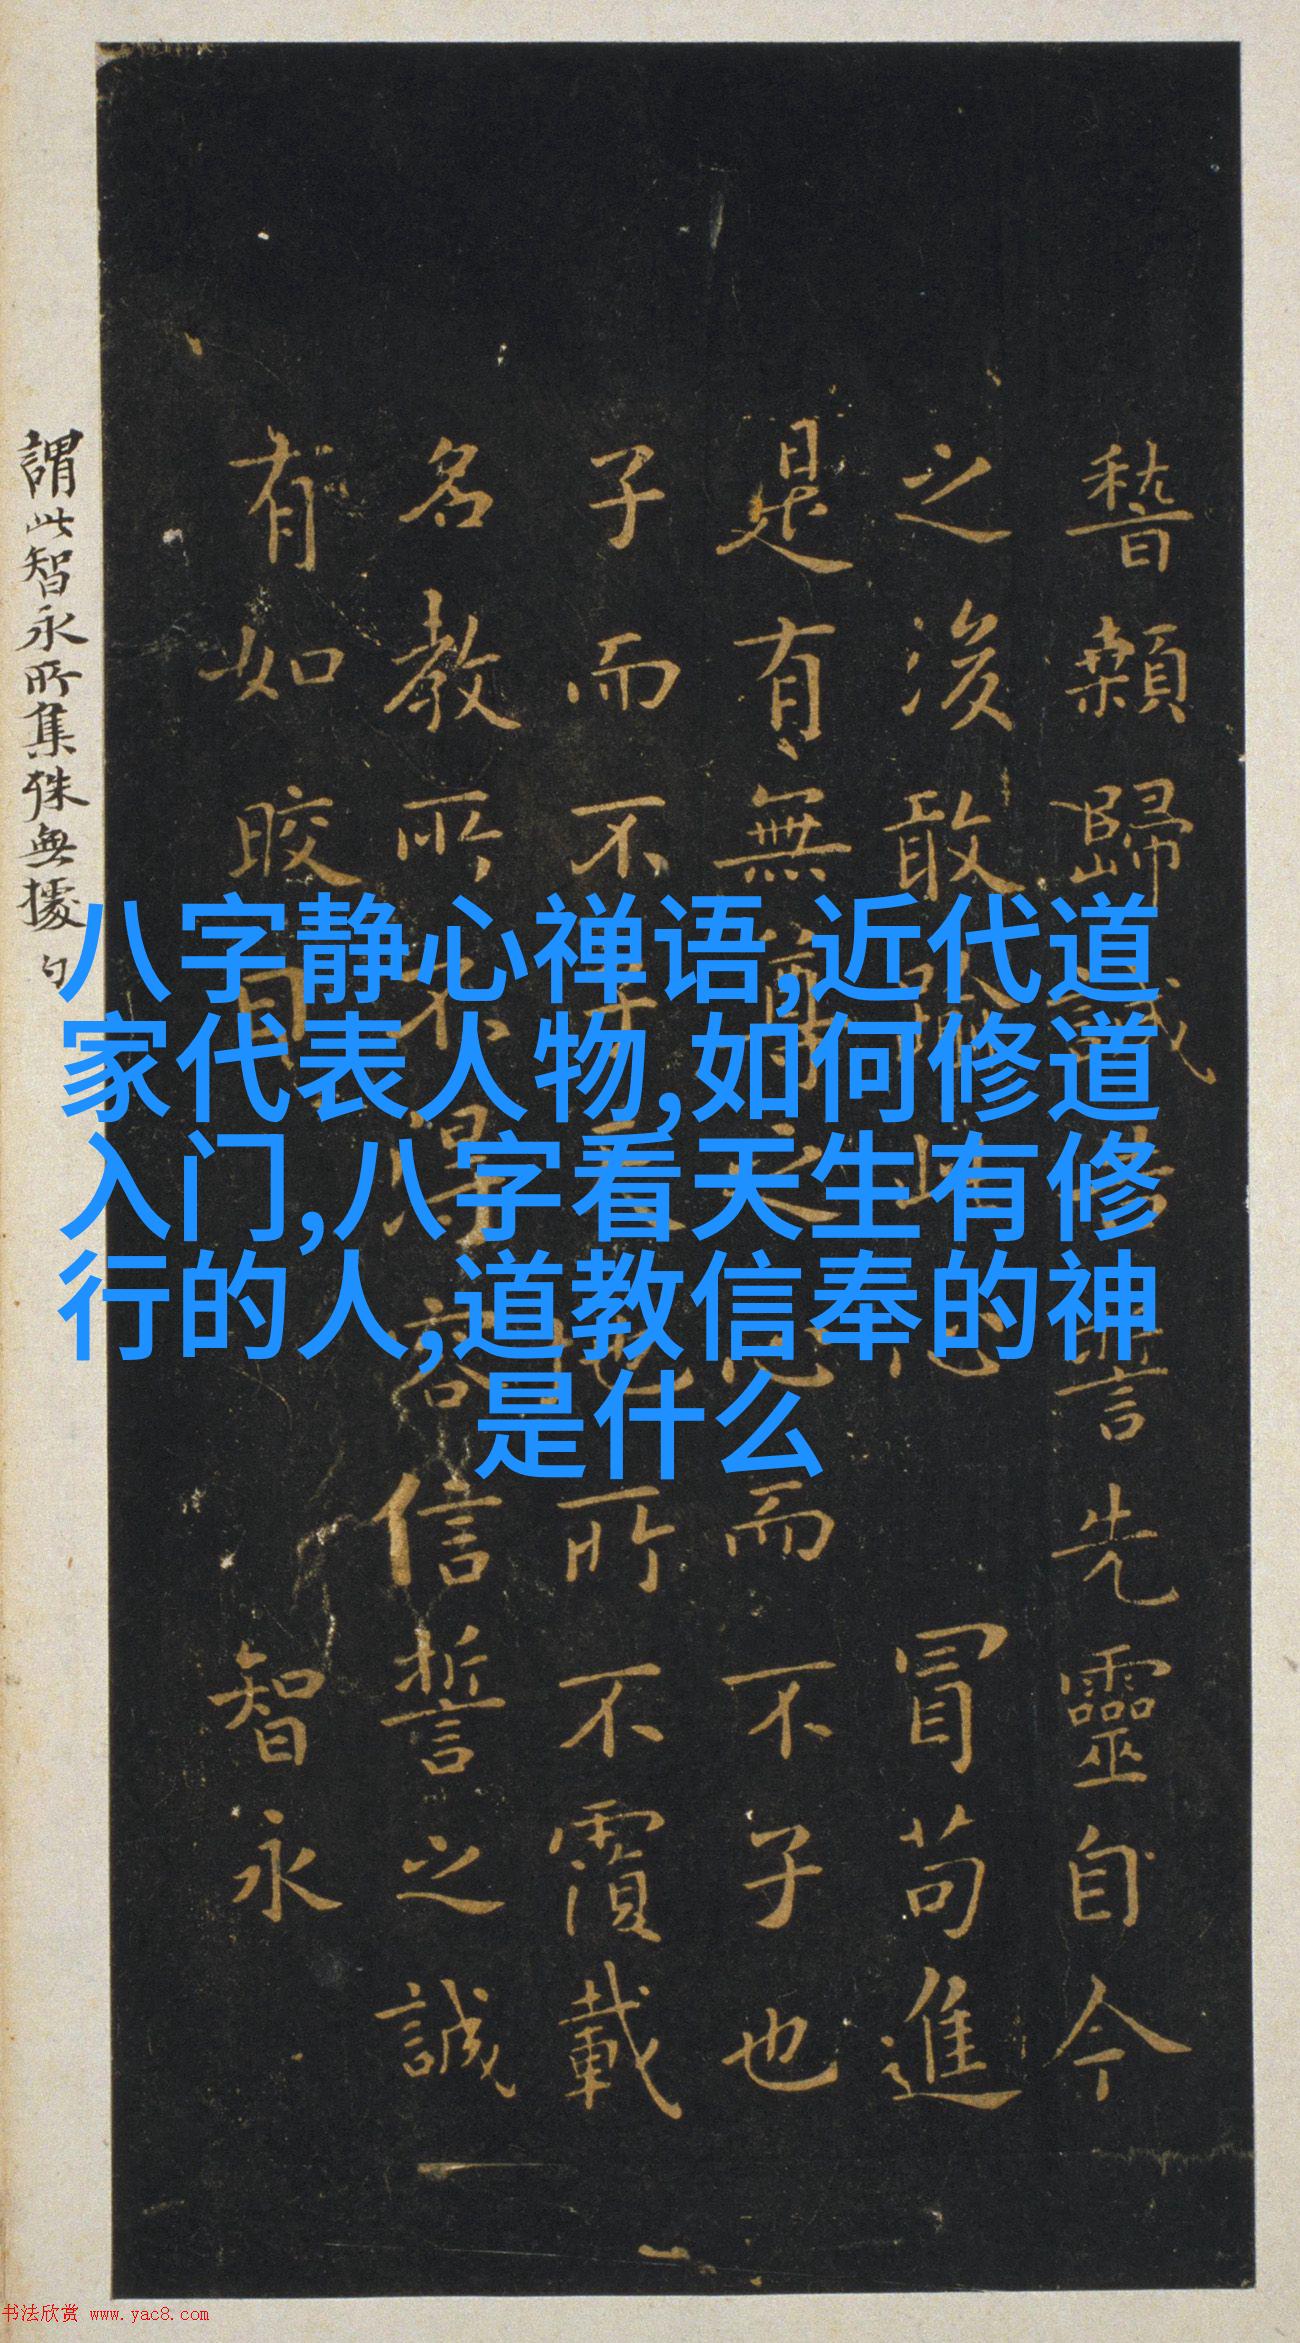 稽顙歸誠告誓先靈自今
之後敢渝此心冒苟進
是有無尊之心而不子也
子而不子天地所不覆載
名教所不得容信誓之誠
有如晈日智永
謂此智永所集殊無據
八字静心禅语,近代道
家代表人物,如何修道
入门,八字看天生有修
行的人,道教信奉的神
是什么
书法欣赏 www.yac8.com